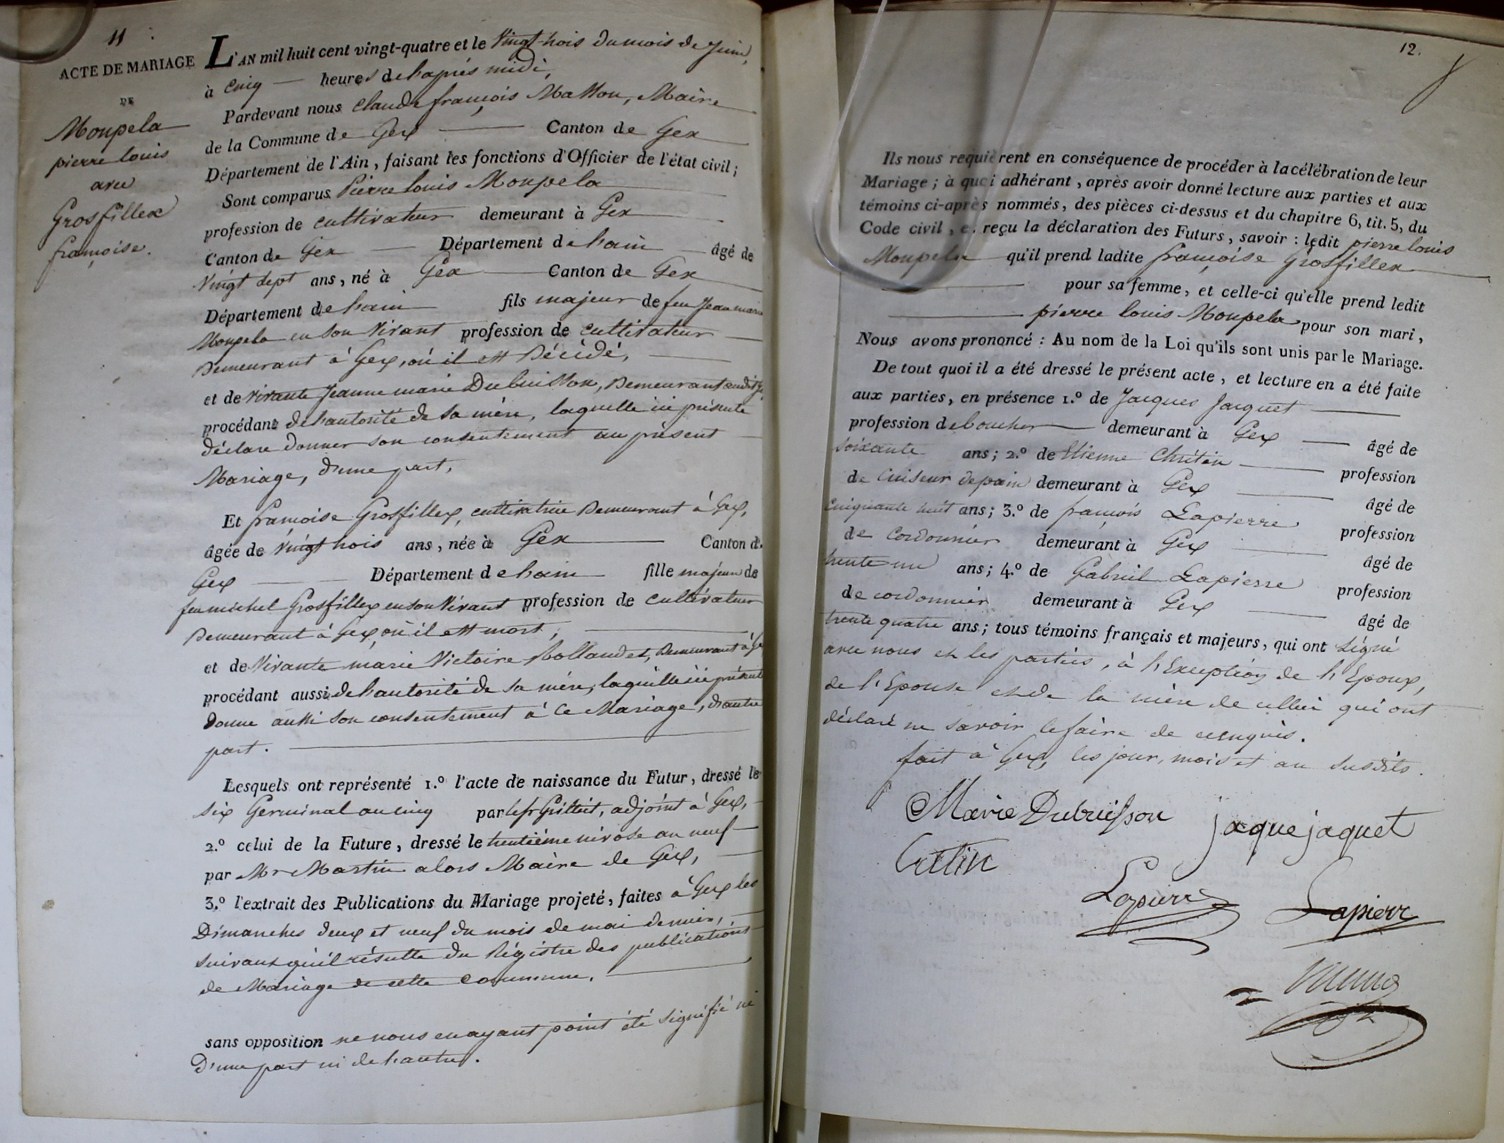 11
ACTE DE MARIAGE
DE
Moupela
pierre louis
avec
Grosfillex
françoise.
L'AN mil huit cent vingt-quatre et le vingt-trois du mois de Juin,
à cinq heures de l'après midi,
Pardevant nous claude françois Maire
de la Commune de Gex Canton de Gex
Département de l'Ain, faisant les fonctions d'Officier de l'état civil;
Sont comparus Pierre louis Moupela
profession de cultivateur demeurant à Gex
Canton de Gex Département de l'ain âgé de
Vingt sept ans, né à Gex Canton de Gex
Département de l'ain fils majeur de feu Jean marie
Moupela en son vivant profession de cultivateur
Demeurant à Gex, où il est Décédé,
et de vivante Jeanne marie Dubuisson, Demeurant audit Gex,
procédant de l'autorité de sa mère, laquelle ici présente
déclare donner son consentement au présent
Mariage, d'une part,
Et françoise Grosfillex, cultivatrice Demeurant à Gex,
âgée de vingt trois ans, née à Gex Canton de
Gex Département de l'ain fille majeure de
feu michel Grosfillex en son vivant profession de cultivateur
Demeurant à Gex, où il est mort,
et de Vivante marie Victoire Demeurant à Gex
procédant aussi de l'autorité de sa mère, laquelle ici présente
Donne aussi son consentement à ce Mariage, d'autre
part.
Lesquels ont représenté 1.º l'acte de naissance du Futur, dressé le
six Germinal an cinq par adjoint à Gex,
2.º celui de la Future, dressé le trentième nivose an neuf
par Mr Martin alors Maire de Gex,
3.º l'extrait des Publications du Mariage projeté, faites à Gex les
Dimanches deux et neuf du mois de mai dernier,
suivant qu'il résulte du Régistre des publications
de Mariage de cette commune.
sans opposition ne nous en ayant point été signifié ni
d'une part ni de l'autre.
12.
Ils nous requièrent en conséquence de procéder à la célébration de leur
Mariage; à quoi adhérant, après avoir donné lecture aux parties et aux
témoins ci-après nommés, des pièces ci-dessus et du chapitre 6, tit. 5, du
Code civil, reçu la déclaration des Futurs, savoir : ledit pierre louis
Moupela qu'il prend ladite françoise Grosfillex
pour sa femme, et celle-ci qu'elle prend ledit
pierre louis Moupela pour son mari,
Nous avons prononcé : Au nom de la Loi qu'ils sont unis par le Mariage.
De tout quoi il a été dressé le présent acte, et lecture en a été faite
aux parties, en présence 1.º de Jacques Jacquet
profession de boucher demeurant à Gex âgé de
soixante ans; 2.º de Etienne Chrétin profession
de cuiseur de pain demeurant à Gex âgé de
cinquante huit ans; 3.º de françois Lapierre profession
de cordonnier demeurant à Gex âgé de
trente un ans; 4.º de Gabriel Lapierre profession
de cordonnier demeurant à Gex âgé de
trente quatre ans; tous témoins français et majeurs, qui ont Signé
avec nous et les parties, à l'Exception de l'Epoux,
de l'Epouse et de la mère de celle ci qui ont
déclaré ne savoir le faire de ce enquis.
fait à Gex, les jour, mois et an susdits.
Marie Dubuisson jaque jaquet
Lapierre Lapierre